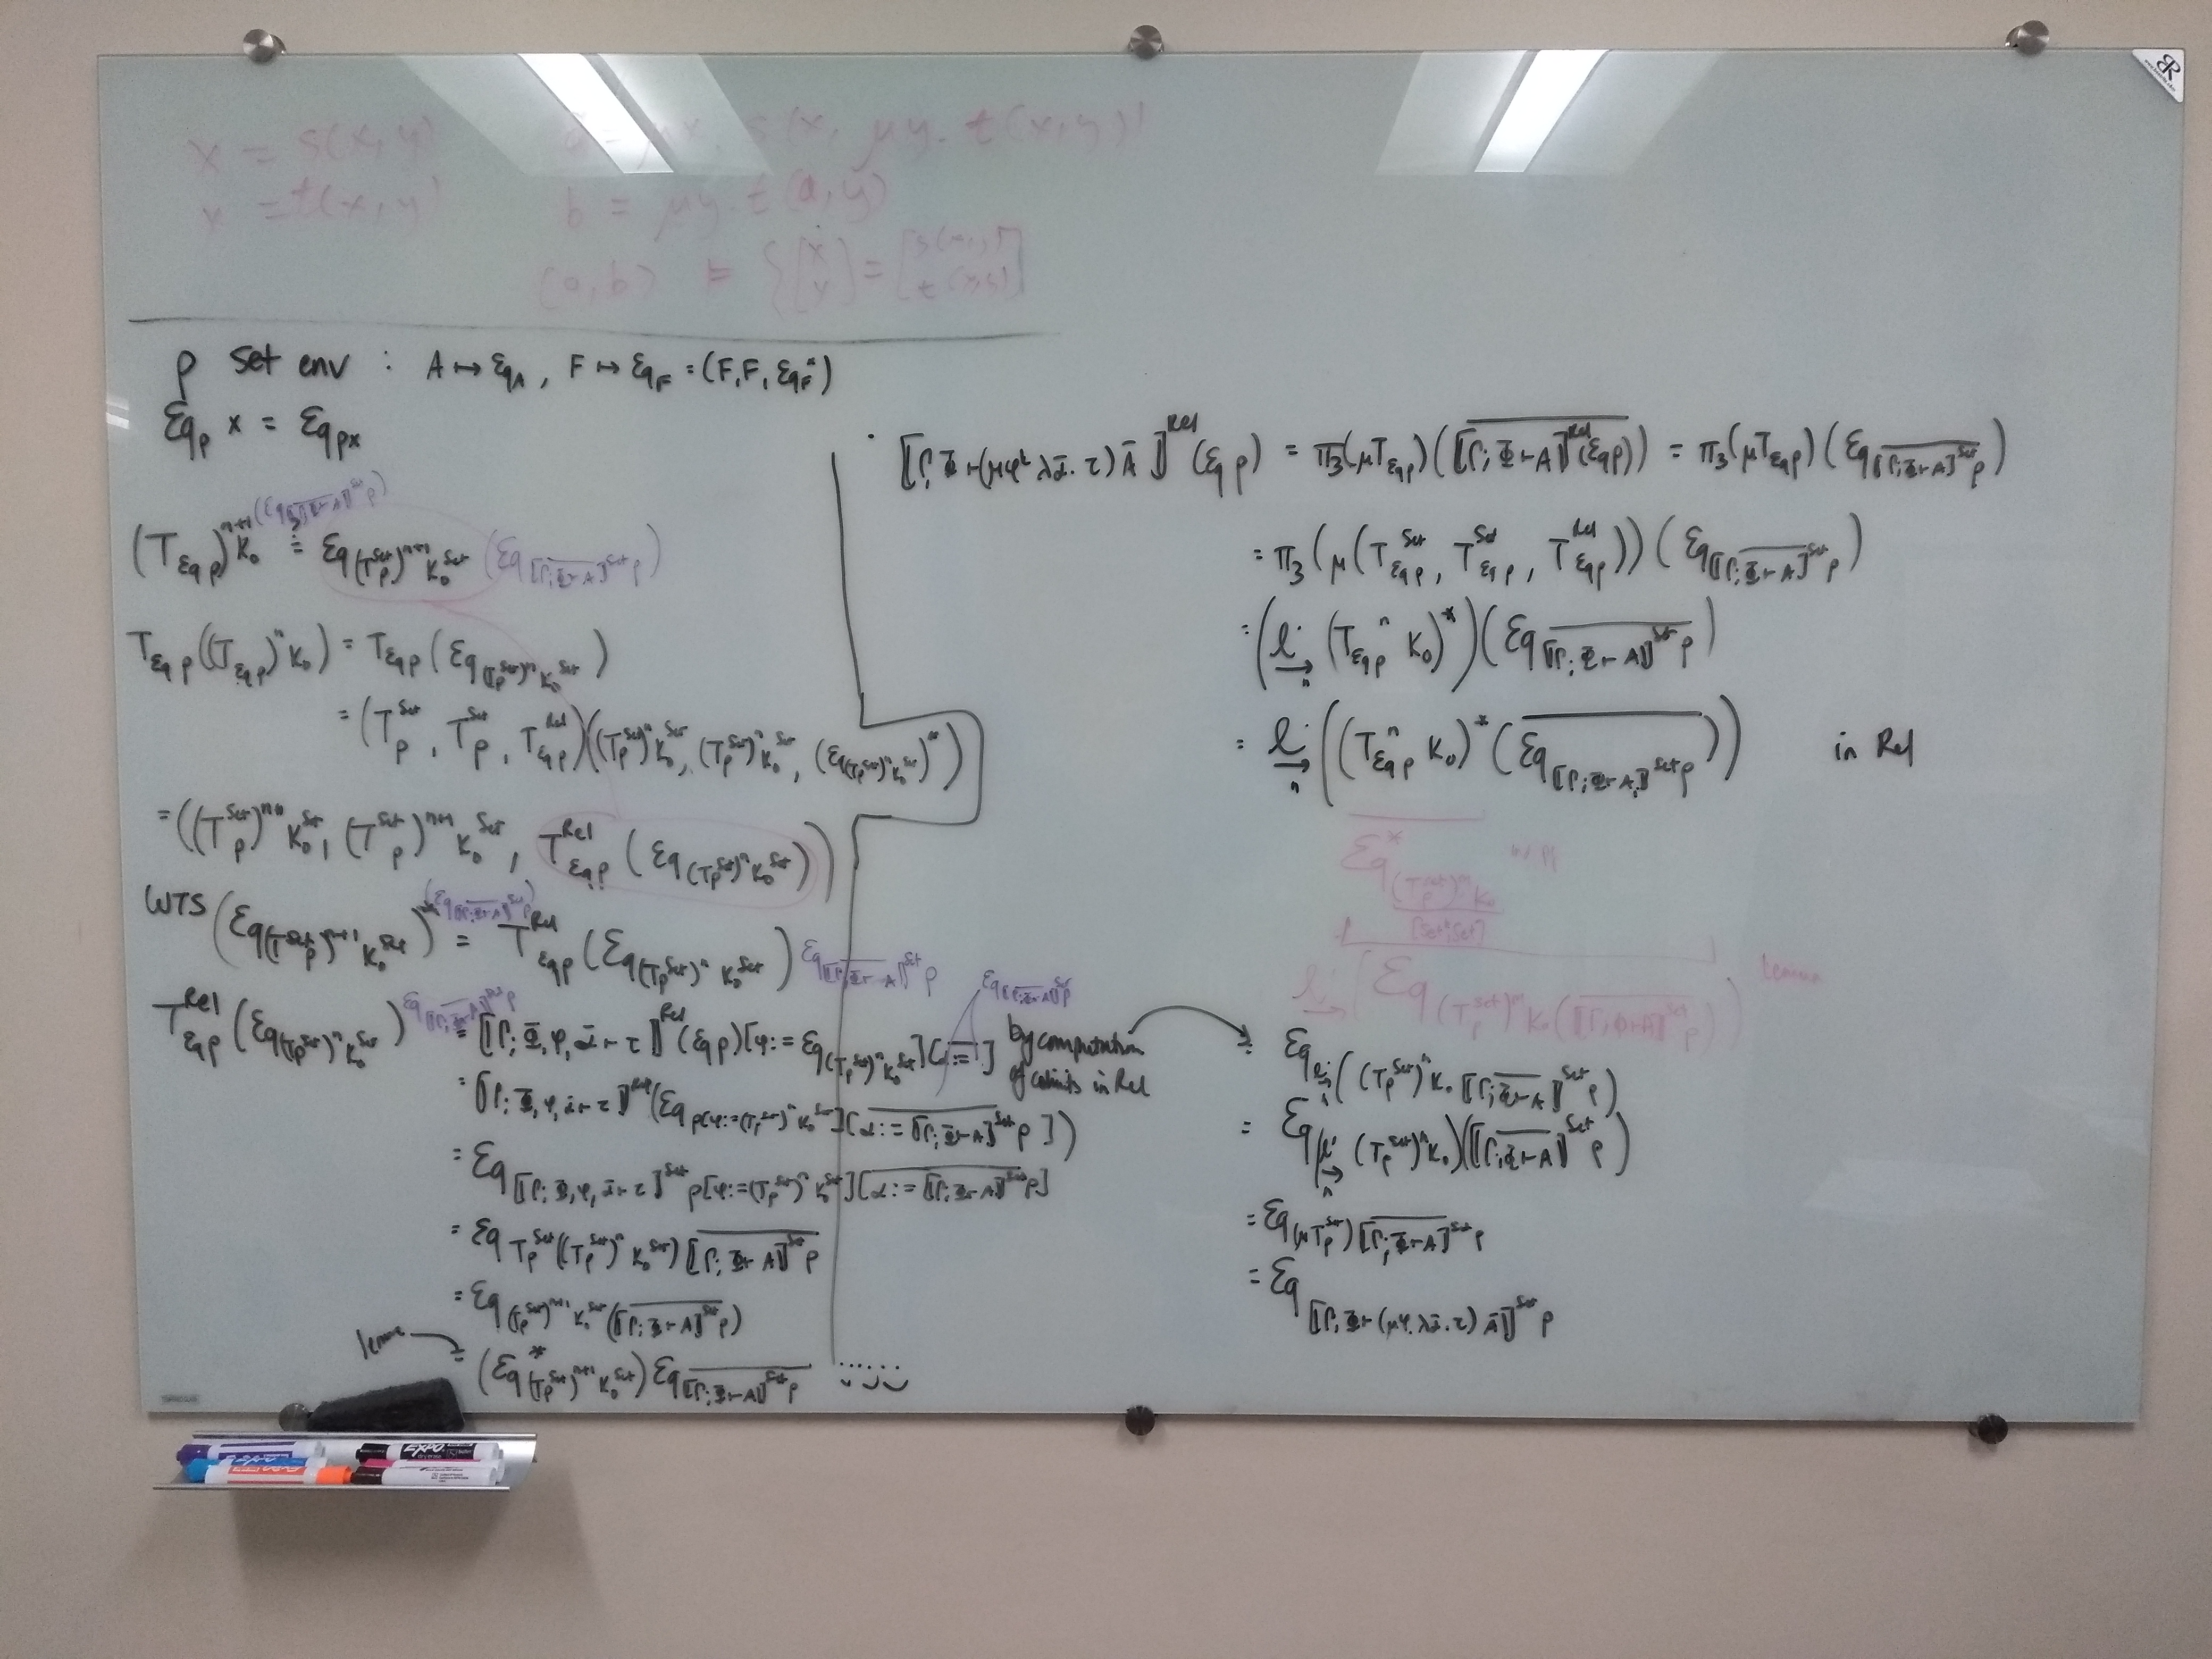 x = s(x, y)
= t(x, y)
μx. s(x, μy. t(x, y))
b = μy. t(a, y)
(a, b) ⊨ { [x y] = [s(x, y) t(x, y)]
ρ set env : A ↦ Eq_A , F ↦ Eq_F = (F, F, Eq_F^*)
Eq_ρ x = Eq_{ρx}
(T_{Eq ρ})^{n+1} K_0 (Eq_{\overline{⟦Γ;Φ⊢A⟧^{Set} ρ}}) ≟ Eq_{(T_ρ^{Set})^{n+1} K_0^{Set}} (Eq_{\overline{⟦Γ;Φ⊢A⟧^{Set} ρ}})
T_{Eq ρ}((T_{Eq ρ})^n K_0) = T_{Eq ρ} (Eq_{(T_ρ^{Set})^n K_0^{Set}})
= (T_ρ^{Set}, T_ρ^{Set}, T_{Eq ρ}^{Rel})((T_ρ^{Set})^n K_0^{Set}, (T_ρ^{Set})^n K_0^{Set}, (Eq_{(T_ρ^{Set})^n K_0^{Set}})^*)
= ((T_ρ^{Set})^{n+1} K_0^{Set}, (T_ρ^{Set})^{n+1} K_0^{Set}, T_{Eq ρ}^{Rel} (Eq_{(T_ρ^{Set})^n K_0^{Set}}))
WTS (Eq_{(T_ρ^{Set})^{n+1} K_0^{Set}})^* (Eq_{\overline{⟦Γ;Φ⊢A⟧^{Set} ρ}}) = T_{Eq ρ}^{Rel} (Eq_{(T_ρ^{Set})^n K_0^{Set}}) Eq_{\overline{⟦Γ;Φ⊢A⟧^{Set} ρ}}
T_{Eq ρ}^{Rel} (Eq_{(T_ρ^{Set})^n K_0^{Set}}) Eq_{\overline{⟦Γ;Φ⊢A⟧^{Set} ρ}} = ⟦Γ; Φ, φ, \bar{α} ⊢ τ⟧^{Rel} (Eq ρ)[φ := Eq_{(T_ρ^{Set})^n K_0^{Set}}][α := ]
Eq_{\overline{⟦Γ;Φ⊢A⟧^{Set} ρ}}
= ⟦Γ; Φ, φ, \bar{α} ⊢ τ⟧^{Rel} (Eq_{ρ[φ := (T_ρ^{Set})^n K_0^{Set}][\overline{α := ⟦Γ;Φ⊢A⟧^{Set} ρ}]})
= Eq_{⟦Γ; Φ, φ, \bar{α} ⊢ τ⟧^{Set} ρ[φ := (T_ρ^{Set})^n K_0^{Set}][\overline{α := ⟦Γ;Φ⊢A⟧^{Set} ρ}]}
= Eq_{T_ρ^{Set}((T_ρ^{Set})^n K_0^{Set}) \overline{⟦Γ;Φ⊢A⟧^{Set} ρ}}
= Eq_{(T_ρ^{Set})^{n+1} K_0^{Set} (\overline{⟦Γ;Φ⊢A⟧^{Set} ρ})}
= (Eq^*_{(T_ρ^{Set})^{n+1} K_0^{Set}}) Eq_{\overline{⟦Γ;Φ⊢A⟧^{Set} ρ}}
⟦Γ; Φ ⊢ (μφ^k λ\bar{α}. τ) \bar{A}⟧^{Rel} (Eq ρ) = π_3(μT_{Eq ρ}) (\overline{⟦Γ;Φ⊢A⟧^{Rel} (Eq ρ)}) = π_3(μT_{Eq ρ}) (Eq_{\overline{⟦Γ;Φ⊢A⟧^{Set} ρ}})
= π_3(μ(T_{Eq ρ}^{Set}, T_{Eq ρ}^{Set}, T_{Eq ρ}^{Rel})) (Eq_{\overline{⟦Γ;Φ⊢A⟧^{Set} ρ}})
= (\underrightarrow{lim}_n (T_{Eq ρ}^n K_0)^*) (Eq_{\overline{⟦Γ;Φ⊢A⟧^{Set} ρ}})
= \underrightarrow{lim}_n ((T_{Eq ρ}^n K_0)^* (\overline{Eq_{⟦Γ;Φ⊢A⟧^{Set} ρ}})) in Rel
Eq^*_{(T_ρ^{Set})^n K_0}
[Set, Set]
Eq_{(T_ρ^{Set})^n K_0 (\overline{⟦Γ;Φ⊢A⟧^{Set} ρ})} Lemma
by computation of colimits in Rel
= Eq_{\underrightarrow{lim}_n ((T_ρ^{Set})^n K_0 \overline{⟦Γ;Φ⊢A⟧^{Set} ρ})}
= Eq_{(\underrightarrow{lim}_n (T_ρ^{Set})^n K_0)(\overline{⟦Γ;Φ⊢A⟧^{Set} ρ})}
= Eq_{(μT_ρ^{Set}) \overline{⟦Γ;Φ⊢A⟧^{Set} ρ}}
= Eq_{⟦Γ; Φ ⊢ (μφ. λ\bar{α}. τ) \bar{A}⟧^{Set} ρ}
EXPO